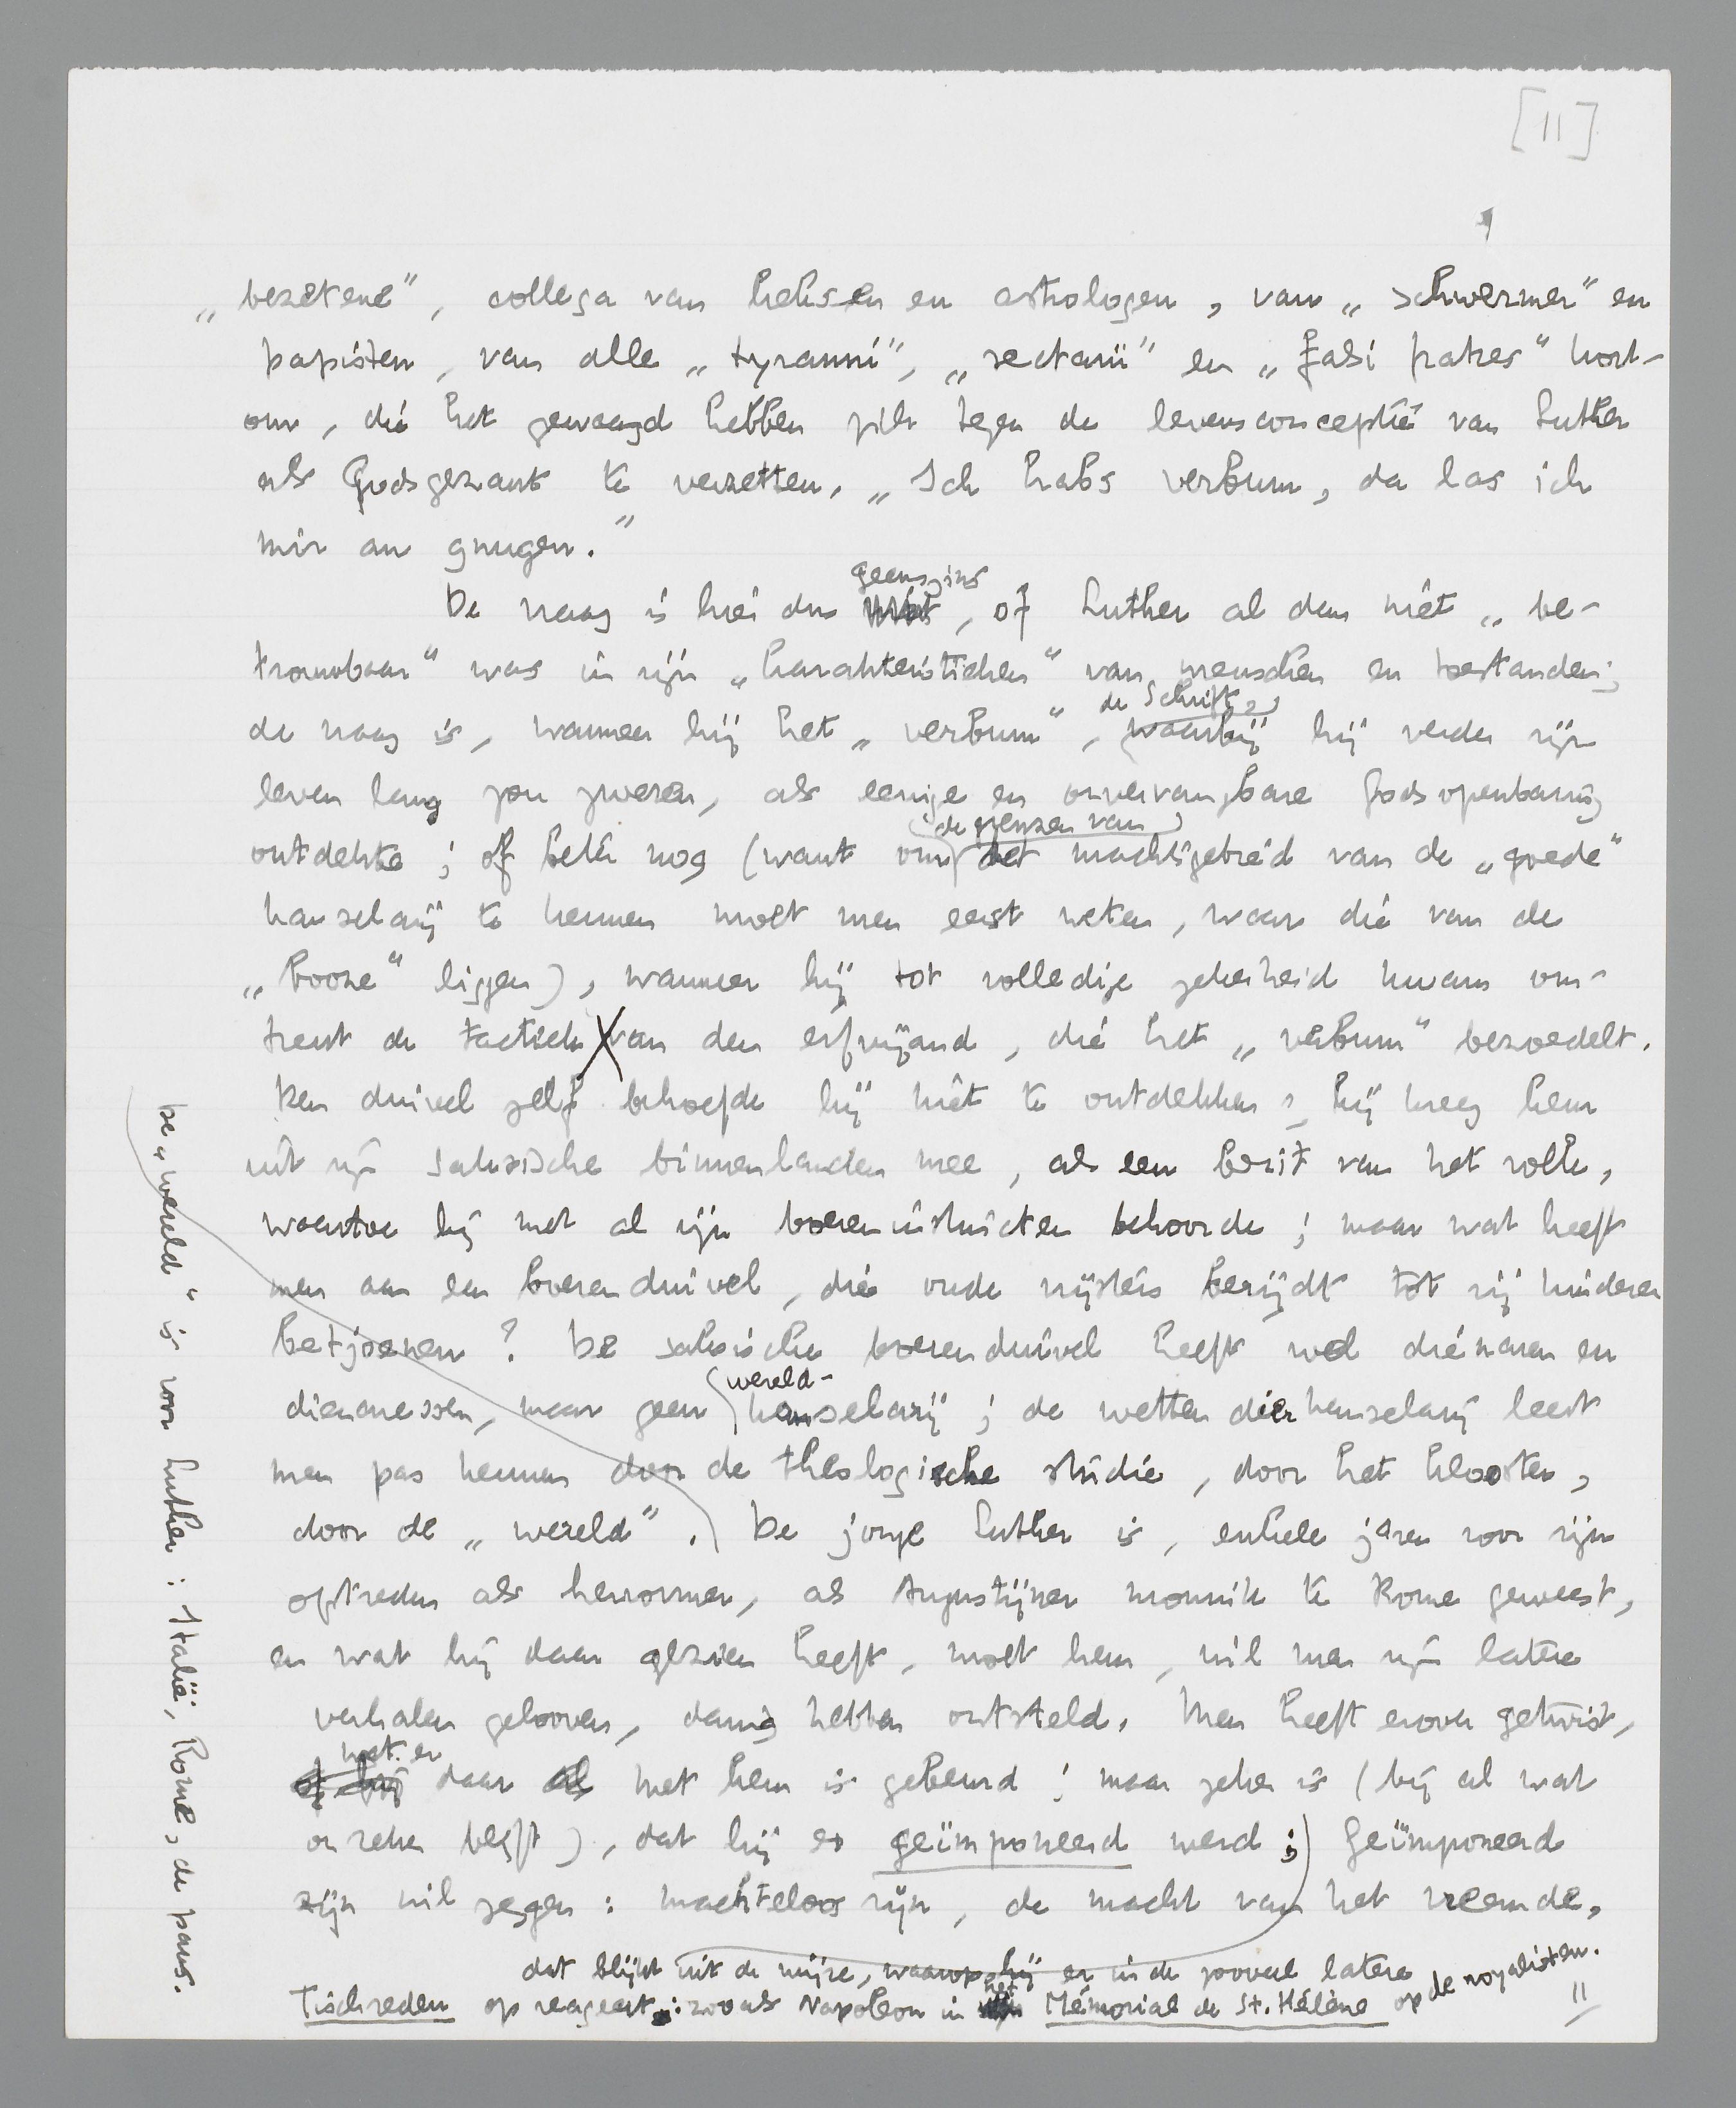 [11]
„bezetene”, collega van heksen en astrologen, van „Schwermer” en
papisten, van alle „tyranni”, „sectarii” en „falsi fratres” kort-
om, die het gewaagd hebben zich tegen de levensconceptie van Luther
als Godsgezant te verzetten. „Ich habs verbum, da las ich
mir an gnugen.”
De vraag is hier dus geenszins, of Luther al dan niet „be-
trouwbaar” was in zijn „karakteristieken” van menschen en toestanden;
de vraag is, wanneer hij het „verbum”, de Schrift, waarbij hij verder zijn
leven lang zou zweren, als eenige en onvervangbare Godsopenbaring
ontdekte; of beter nog (want om de grenzen van het machtsgebied van de „goede”
kanselarij te kennen moet men eerst weten, waar die van de
„booze” liggen), wanneer hij tot volledige zekerheid kwam om-
trent de tactiek van den erfvijand, die het „verbum” bezoedelt.
Den duivel zelf behoefde hij niet te ontdekken; hij kreeg hem
uit zijn Saksische binnenlanden mee, als een bezit van het volk,
waartoe hij met al zijn boereninstincten behoorde; maar wat heeft
men aan een boerenduivel, die oude vrijsters berijdt tot zij kinderen
betjoenen? De saksische boerenduivel heeft wel dienaren en
dienaressen, maar geen wereld-kanselarij; de wetten dier kanselarij leert
men pas kennen door de theologische studie, door het klooster,
door de „wereld”. De jonge Luther is, enkele jaren voor zijn
optreden als hervormer, als Augustijner monnik te Rome geweest,
en wat hij daar gezien heeft, moet hem, wil men zijn latere
verhalen gelooven, danig hebben ontsteld. Men heeft erover getwist,
wat er daar met hem is gebeurd; maar zeker is (bij al wat
onzeker blijft), dat hij er geïmponeerd werd; Geïmponeerd
zijn wil zeggen: machteloos zijn, de macht van het vreemde,
dat blijkt uit de wijze, waarop hij er in de zooveel latere
Tischreden op reageert: zooals Napoleon in het Mémorial de St. Hélène op de royalisten.
11
De „wereld” is voor Luther: Italië, Rome, de paus.